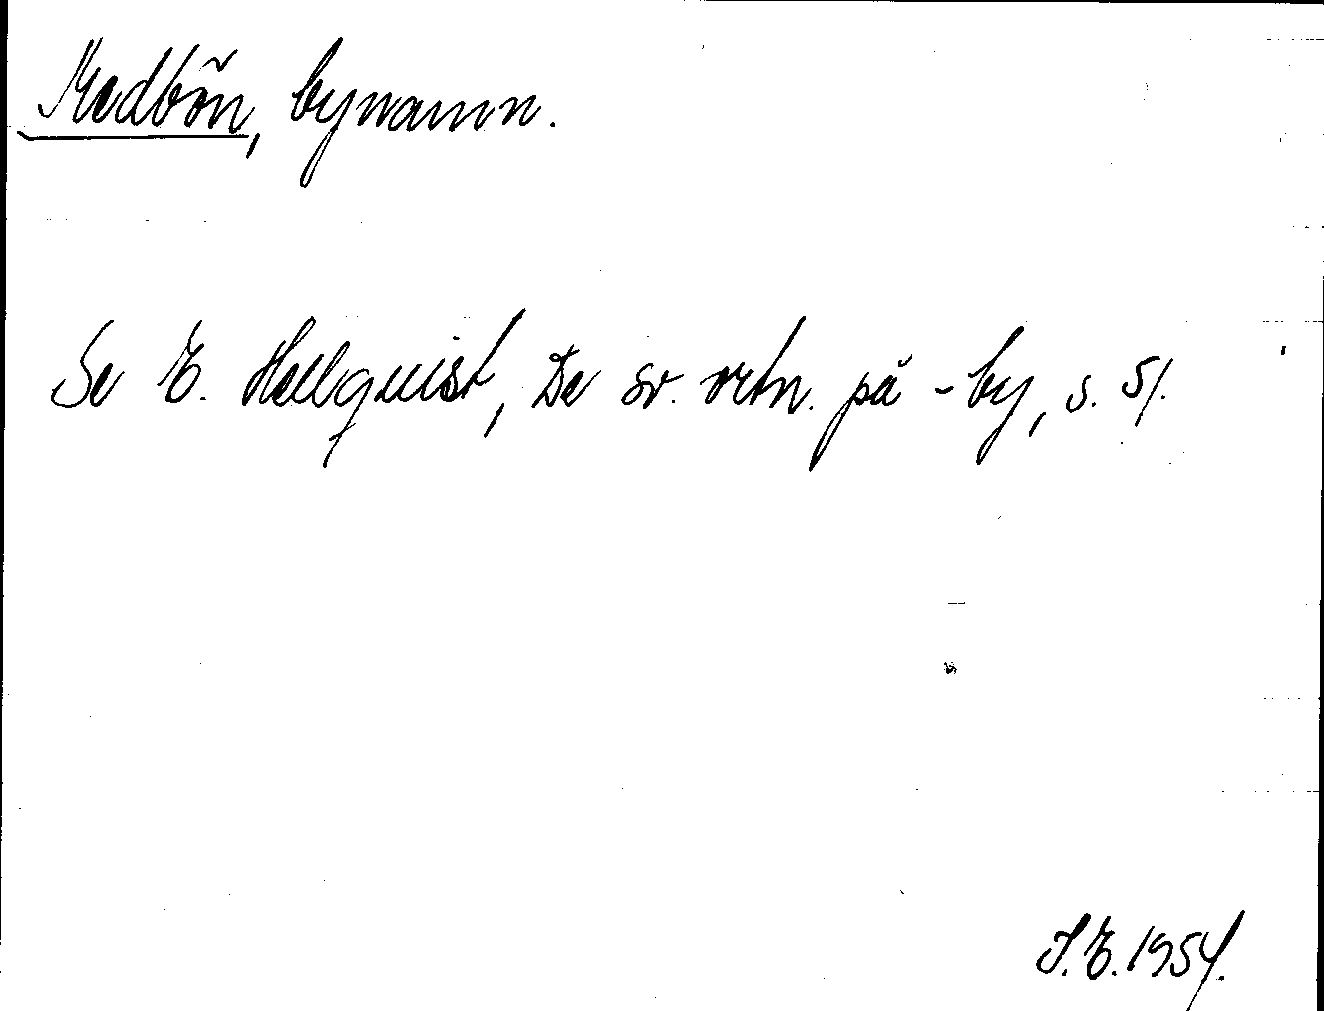 Medbön, bynamn.
Se E. Hellquist, De sv. ortn. på -by, s. 51.
S.E. 1954.